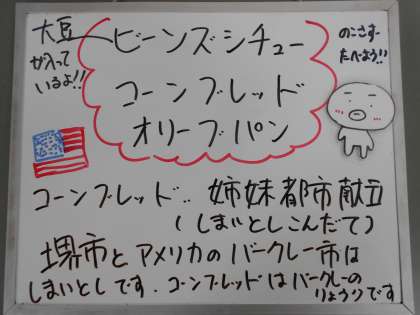 大豆
が入って
いるよ!!
ビーンズシチュー
コーンブレッド
オリーブパン
のこさず
たべよう!!
コーンブレッド‥姉妹都市献立
(しまいとしこんだて)
堺市とアメリカのバークレー市は
しまいとしです。コーンブレッドはバークレーの
りょうりです